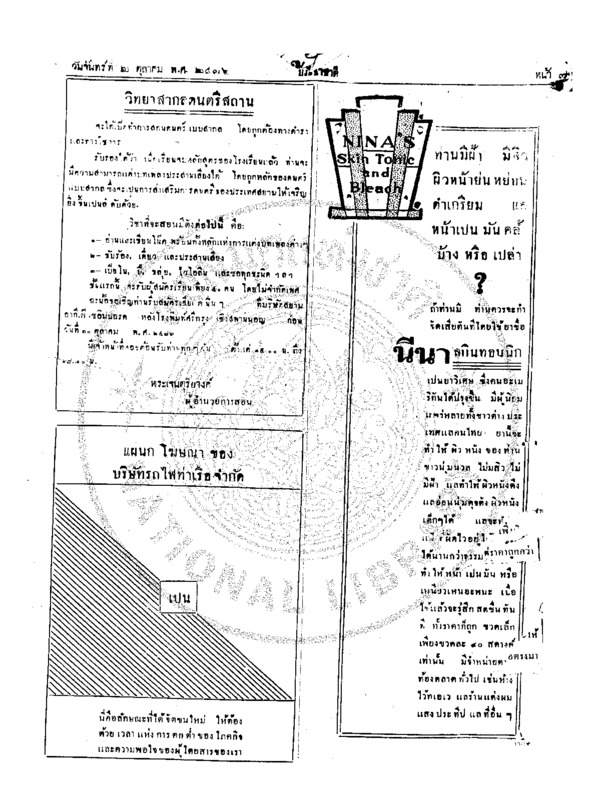 วันจันทร์ที่ ๒ ตุลาคม พ.ศ.
ประชาชาติ
หน้า ๗
วิทยาสากลดนตรีสถาน
จะได้เปิดทำการสอนดนตรี แบบสากล โดยถูกต้องทางตำรา
และทางวิชาการ
รับรองได้ว่า เมื่อเรียนจบหลักสูตรของโรงเรียนแล้ว ท่านจะ
มีความสามารถแต่งบทเพลงประสานเสียงได้ โดยถูกหลักของดนตรี
แบบสากล ซึ่งจะเป็นการส่งเสริมการดนตรีของประเทศสยามให้เจริญ
ยิ่งขึ้นเปนลำดับด้วย
วิชาที่จะสอนมีดังต่อไปนี้ คือ:
๑— อ่านและเขียนโน๊ต พร้อมทั้งหลักแห่งการแต่งบทเพลงต่างๆ
๒— ขับร้อง, เดี่ยว และประสานเสียง
๓— เปียโน, ปี่, ขลุ่ย, ไวโอลิน และซอทุกชนิด ฯลฯ
ชั้นแรกนี้ จะรับผู้สมัครเรียนเพียง ๕๐ คน โดยไม่จำกัดเพศ
ขอเชิญท่านรีบสมัคร ที่บริษัทสยาม
หลังโรงพิมพ์ศรีกรุง เชิงสพานมอญ ก่อน
วันที่ ๓๐ ตุลาคม พ.ศ. ๒๔๗๖
มีเจ้าหน้าที่คอยต้อนรับท่านทุกๆวัน ตั้งแต่ ๑๕.๐๐ น. ถึง
๑๘.๐๐ น.
พระเจนดุริยางค์
ผู้อำนวยการสอน
แผนก โฆษณา ของ
บริษัทรถไฟท่าเรือ จำกัด
เปน
นี่คือลักษณะที่ได้จัดขึ้นใหม่ ให้ต้อง
ด้วย เวลา แห่ง การ ตกต่ำ ของ โภคกิจ
และความพอใจของผู้โดยสารของเรา
NINA'S
Skin Tonic
and
Bleach
ท่านมีฝ้า มีสิว
ผิวหน้าย่น หย่อน
ดำเกรียม แล
หน้าเปน มัน คล้ำ
บ้าง หรือ เปล่า
?
ถ้าท่านมี ท่านควรจะกำ
จัดเสียทันทีโดยใช้ยาชื่อ
นีนา สกินทอนนิก
เปนยาวิเศษ ซึ่งคนอะเม
ริกันได้ปรุงขึ้น มีผู้นิยม
แพร่หลายทั้งชาวต่างประ
เทศแลคนไทย ยานี้จะ
ทำให้ ผิว หนัง ของ ท่าน
ขาวนุ่มนวล ไม่มีสิว ไม่
มีฝ้า แลทำให้ผิวหนังตึง
แลอ่อนนุ่มดุจดังผิวหนัง
เด็กๆได้
ได้นานกว่าธรรม
ราคาถูกกว่า
ทำให้หน้า เปนมัน หรือ
เหนียวเหนอะหนะ เมื่อ
ใช้แล้วจะรู้สึก สดชื่น ทัน
ที ทั้งราคาก็ถูก ขวดเล็ก
เพียงขวดละ ๙๐ สตางค์
เท่านั้น มีจำหน่ายตาม
ท้องตลาดทั่วไป เช่นห้าง
ไว้ท์เอเว แลร้านแต่งผม
แสง ประทีป แล ที่อื่น ๆ
NATIONAL LIBRARY